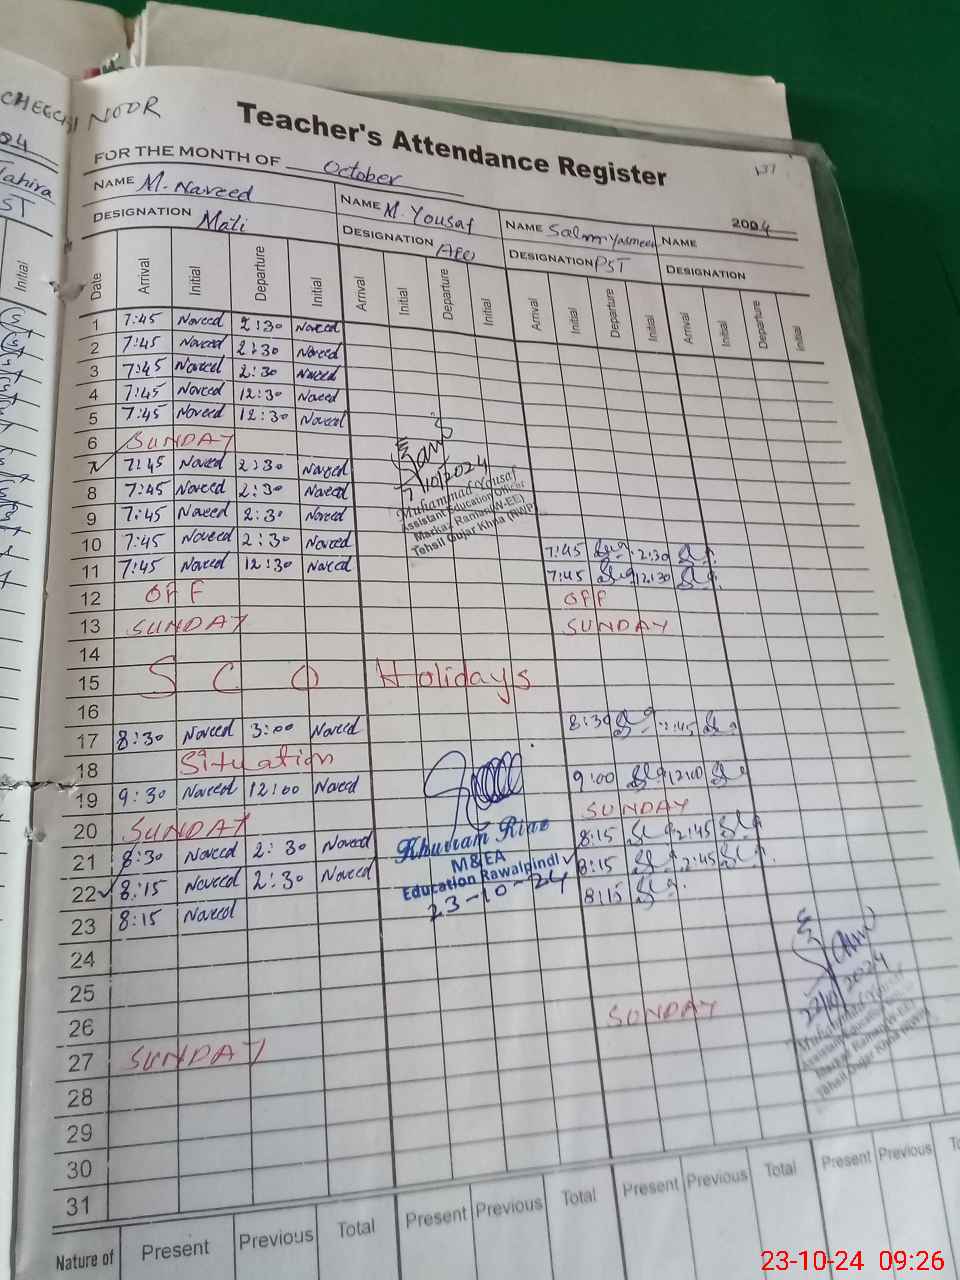 CHEECHI NOOR
Teacher's Attendance Register
137
FOR THE MONTH OF October 2024
NAME M. Naveed NAME M. Yousaf NAME Salma Yasmeen NAME
DESIGNATION Mali DESIGNATION AEO DESIGNATION PST DESIGNATION
Date Arrival Initial Departure Initial Arrival Initial Departure Initial Arrival Initial Departure Initial Arrival Initial Departure Initial
1 7:45 Naveed 2:30 Naveed
2 7:45 Naveed 2:30 Naveed
3 7:45 Naveed 2:30 Naveed
4 7:45 Naveed 12:30 Naveed
5 7:45 Naveed 12:30 Naveed
6 SUNDAY
7 7:45 Naveed 2:30 Naveed
8 7:45 Naveed 2:30 Naveed
9 7:45 Naveed 2:30 Naveed
10 7:45 Naveed 2:30 Naveed 7:45 2:30
11 7:45 Naveed 12:30 Naveed 7:45 12:30
12 OFF OFF
13 SUNDAY SUNDAY
14
15 S C O Holidays
16
17 8:30 Naveed 3:00 Naveed 8:30 2:45
18 Situation
19 9:30 Naveed 12:00 Naveed 9:00 12:00
20 SUNDAY SUNDAY
21 8:30 Naveed 2:30 Naveed 8:15 2:45
22 8:15 Naveed 2:30 Naveed 8:15 2:45
23 8:15 Naveed 8:15
24
25
26
27 SUNDAY SUNDAY
28
29
30
31
7/10/2024
Muhammad Yousaf
Assistant Education Officer
Markaz Raman (W-EE)
Tehsil Gujar Khna (RWP)
Khurram Riaz
M&EA
Education Rawalpindi
23-10-24
22/10/2024
Muhammad Yousaf
Assistant Education Officer
Markaz Raman (W-EE)
Tehsil Gujar Khna (RWP)
Nature of Present Previous Total Present Previous Total Present Previous Total Present Previous
23-10-24 09:26